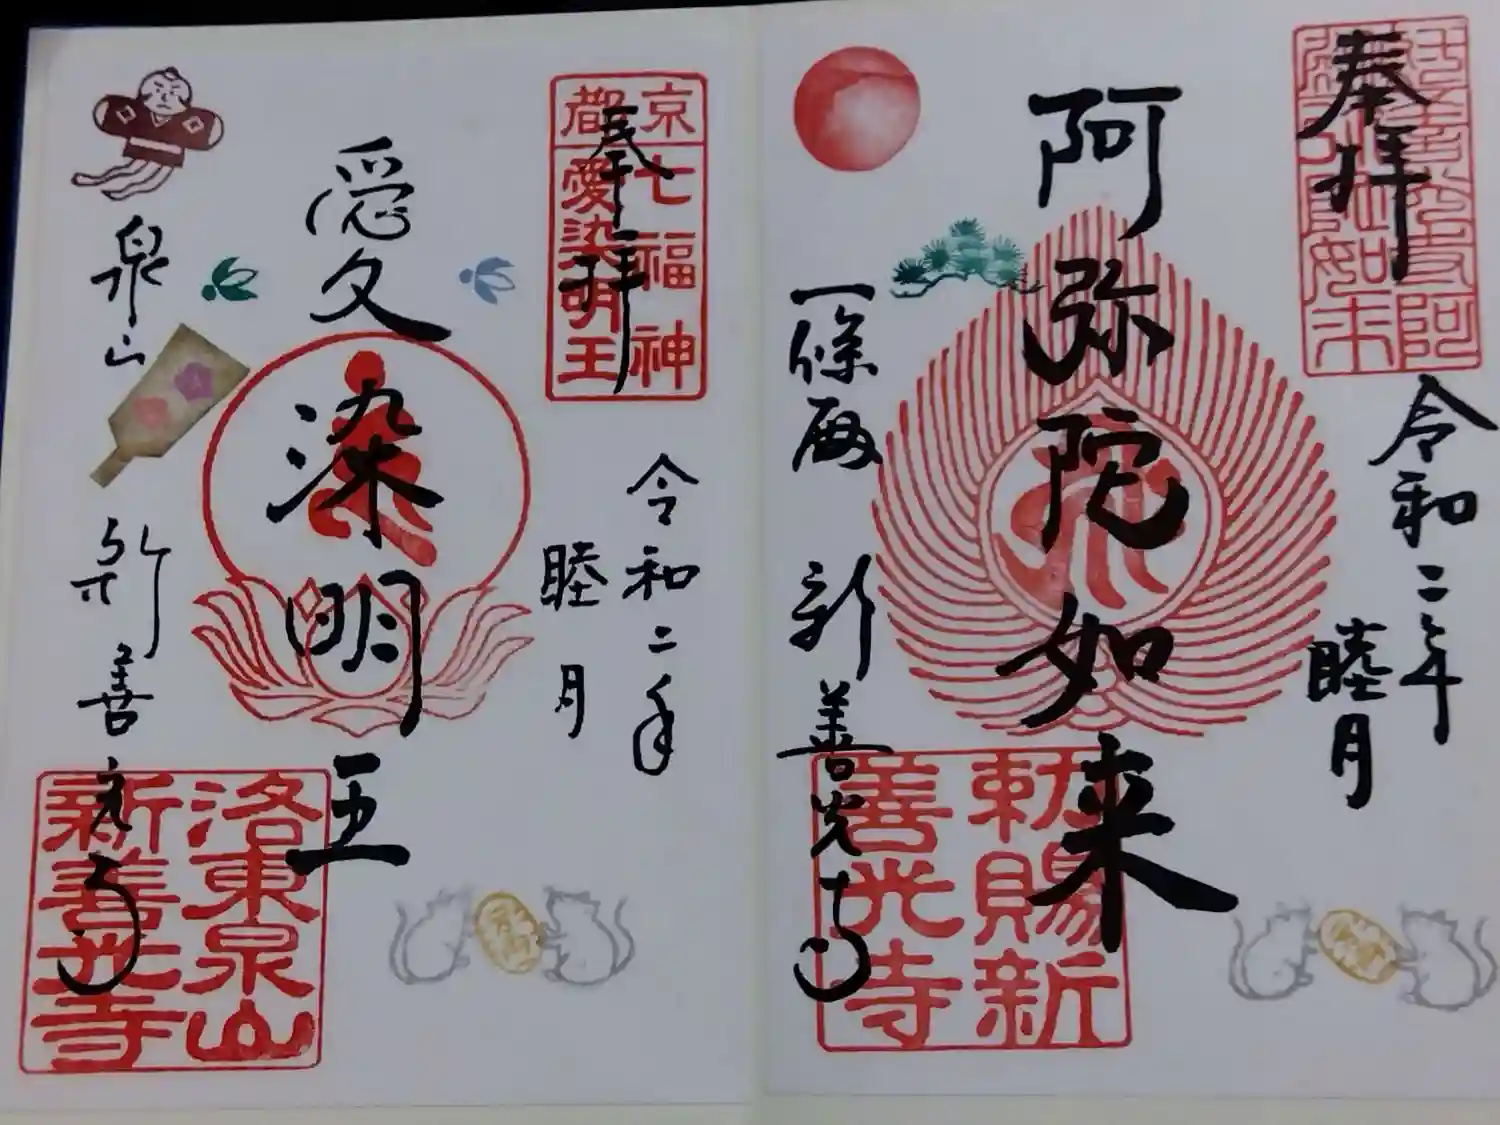 奉拝
阿弥陀如来
令和二年
睦月
一條殿
新善光寺
勅賜新
善光寺
奉拝
京都
七福神
愛染明王
愛染明王
令和二年
睦月
泉山
新善光寺
洛東泉山
新善光寺